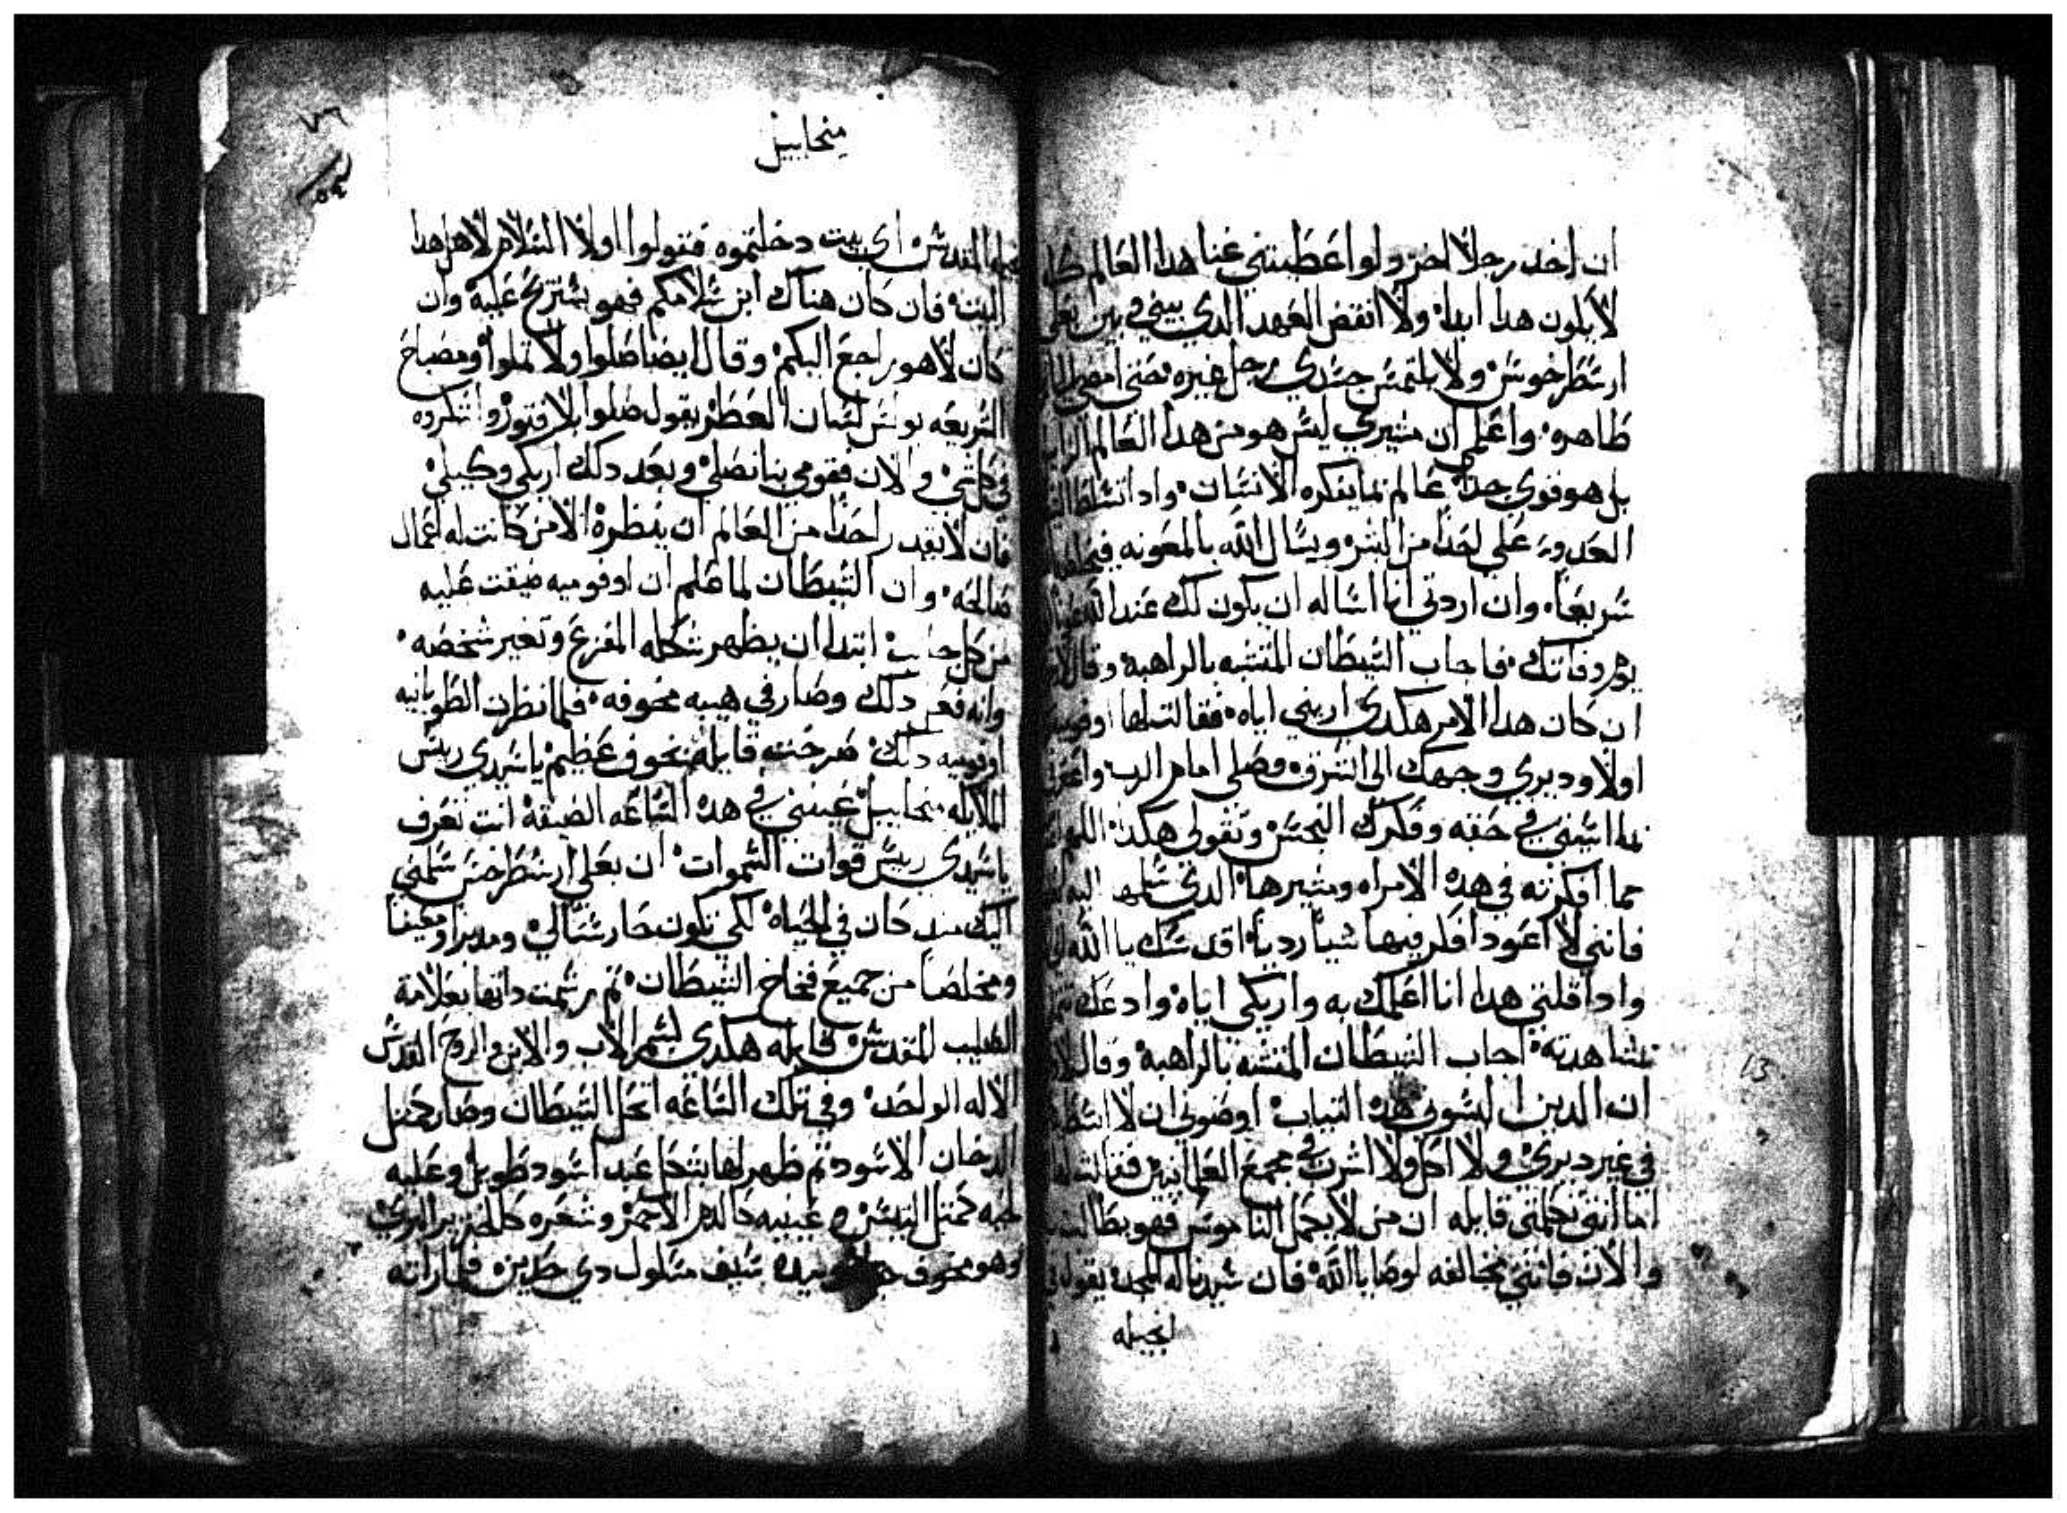 ان اخد رجلاً اخر ولو اعطيتني غنا هدا العالم كله
لا يكون هدا ابداً ولا انقض العهد الدي بيني وبين بعلي
ارسطرخوس ولا يلتمس جسدي رجل غيره حتى امضي
طاهره واعلم ان مشيري ليس هو من هدا العالم
بل هو قوي جداً عالم بما يفكره الانسان وادا تسلط
العدو على احداً من البشر ويسال الله بالمعونه
سريعاً وان اردتي انا اساله ان يكون لك عند الله
يوم وفاتك فاجاب الشيطان المتشبه بالراهبة وقال
ان كان هدا الامر هكدى اريني اياه فقالت لها اوفوميه
اولاً وديري وجهك الى الشرق وصلي امام الرب
حقه وفكرك النجس وتقولي هكدا اللهم
مما افكرته في هده الامراه ومشيرها الدي
فانني لا اعود افكر فيها شياً ردياً
وادا قلتي هدا انا اعلمك به واريكي اياه وادعك
مشاهدته اجاب الشيطان المتشبه بالراهبة وقال
ان الدين البسوني هده الثياب اوصوني ان لا
في غير ديري ولا اكل ولا اشرب في مجمع العلمانيين فقالت
اما انتي قايله ان من لا يكمل الناموس فهو بطال
والان فانتي مخالفه لوصايا الله فان سيدنا له المجد يقول
انجيله
ميخاييل
٧٦
٥٩
انجيله المقدس اي بيت دخلتموه فقولوا اولاً السلام لاهل هدا
البيت فان كان هناك ابن سلامكم فهو يستريح عليه وان
كان لا هو راجع اليكم وقال ايضاً صلوا ولا تملوا ومصباح
الشريعه بولس لسان العطر يقول صلوا بلا فتور واشكروه
في كل شي والان فقومي بنا نصلي وبعد دلك اريكي وكيلي
فان لا يقدر احداً من العالم ان ينظره الا من كانت له اعمال
صالحه وان الشيطان لما علم ان اوفوميه ضيقت عليه
من كل جانب ابتدا ان يظهر شكله المفزع وتغير شخصه
وانه فعل دلك وصار في هيبه مخوفه فلما نظرت الطوبانيه
اوفوميه دلك صرخت قايله بخوف عظيم يا سيدي رييس
الملايكه ميخاييل عينني في هده الساعه الضيقة انت تعرف
يا سيدي رييس قوات السموات ان بعلي ارسطرخس سلمني
اليك مند كان في الحياه لكي تكون حارساً لي ومدبراً ومعيناً
ومخلصاً من جميع فخاخ الشيطان تم رشمت داتها بعلامة
الصليب المقدس قايله هكدى بسم الاب والابن والروح القدس
الاله الواحد وفي تلك الساعه انحل الشيطان وصار كمثل
الدخان الاسود تم ظهر لها بشكل عبد اسود طويل وعليه
لحيه كمثل التيس وعينيه كالدم الاحمر وشعره كالخنزير البري
وهو مخوف وبيده سيف مسلول دي حدين فلما راته
13